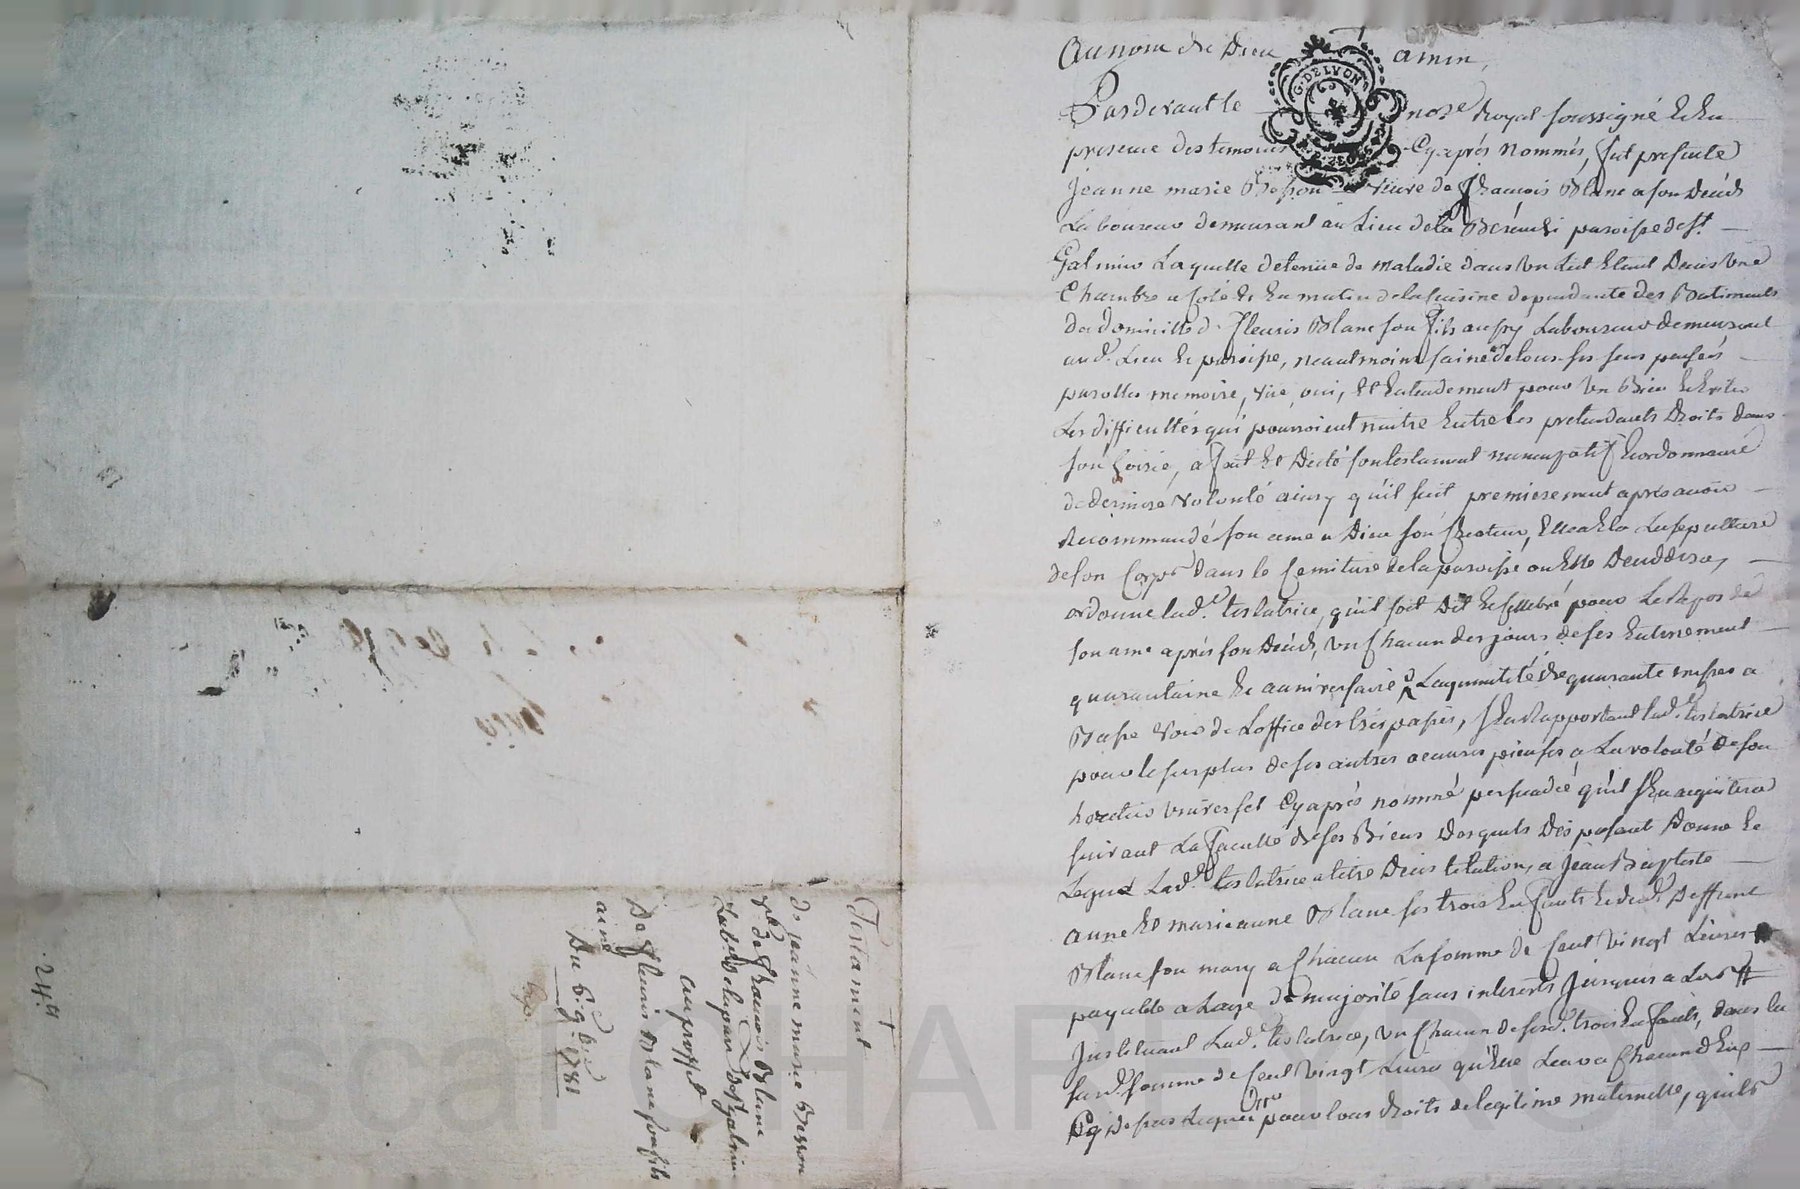 Au nom de Dieu amin,
G. DE LYON
Pardevant le no.re Royal soussigné & En
presence des temoins Cyaprés Nommés, fut presente
Jeanne marie Besson veuve de françois Blanc a son Decéds
Laboureur demeurant au Lieu de la paroisse de S.t
Galmier Laquelle detenüe de maladie dans un Lict Etant Dans une
Chambre a coté & En matin de la cuisine dependante des Batiments
du domicille de fleuris Blanc son fils aussy Laboureur demeurant
aud. Lieu & paroisse, neautmoins saine de tous ses sens pensées
parolles memoire, vüe, ouï, Et Entendement pour un Bien & Eviter
Les difficultés qui pourroient naitre Entre les pretendants Droits dans
son hoirie, a fait Et Dicté son testament nuncupatif & ordonnance
de derniere volonté ainsy qu'il suit premierement aprés avoir
Recommandé son ame a Dieu son Createur, la sepulture
de son Corps dans le Cemitiere de la paroisse ou Elle Deceddera,
ordonne lad.e testatrice, qu'il soit Dit & cellebré pour Le Repos de
son ame aprés son Decéds, un chacun des jours de ses Enterrement
quarantaine & anniversaire La quantité de quarante messes a
Basse voix de L'office des trépassés, s'En Rapportant lad.e testatrice
pour le surplus de ses autres oeuvres pieuses a La volonté de son
heretier universel Cyaprés nommé persuadée qu'il s'En acquittera
suivant La faculté de ses Biens desquels Disposant Donne &
Legue Lad.e testatrice a titre D'institution, a Jean Baptiste
anne Et marieanne Blanc ses trois Enfants & dud. Deffunt
Blanc son mary a chacun La somme de Cent vingt Livres
payable a L'age de majorité sans interets Jusques a Lors
Instituant Lad.e testatrice, un chacun de sesd. trois Enfants, dans la
susd. somme de Cent vingt Livres qu'Elle Leur a chacun d'Eux
Cy dessus Legué pour tous droits de legitime maternelle, quils
Testament
de jeanne marie Besson
v.ve de françois Blanc
Lab.r de S.t galmier
au proffit
De fleuris Blanc son fils
ainé
Du 6. 9.bre 1781
24.